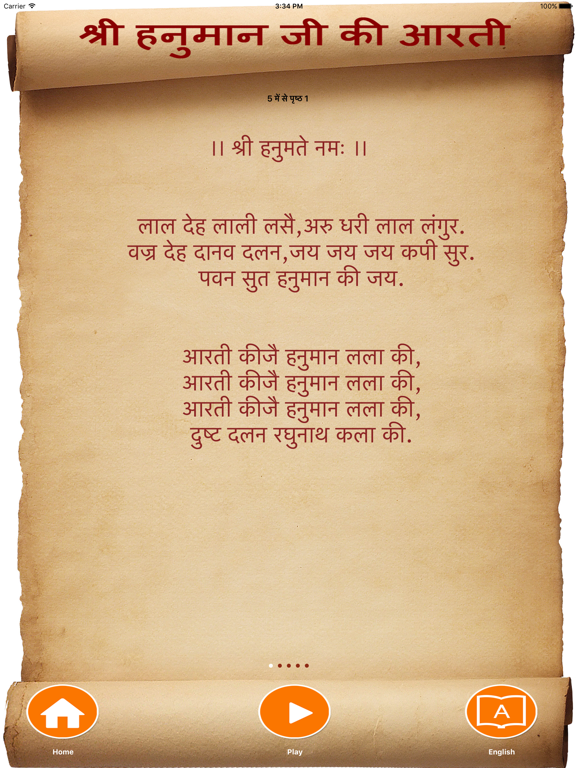 Carrier 3:34 PM 100%
श्री हनुमान जी की आरती
5 में से पृष्ठ 1
।। श्री हनुमते नमः ।।
लाल देह लाली लसै,अरु धरी लाल लंगुर.
वज्र देह दानव दलन,जय जय जय कपी सुर.
पवन सुत हनुमान की जय.
आरती कीजै हनुमान लला की,
आरती कीजै हनुमान लला की,
आरती कीजै हनुमान लला की,
दुष्ट दलन रघुनाथ कला की.
A
Home Play English